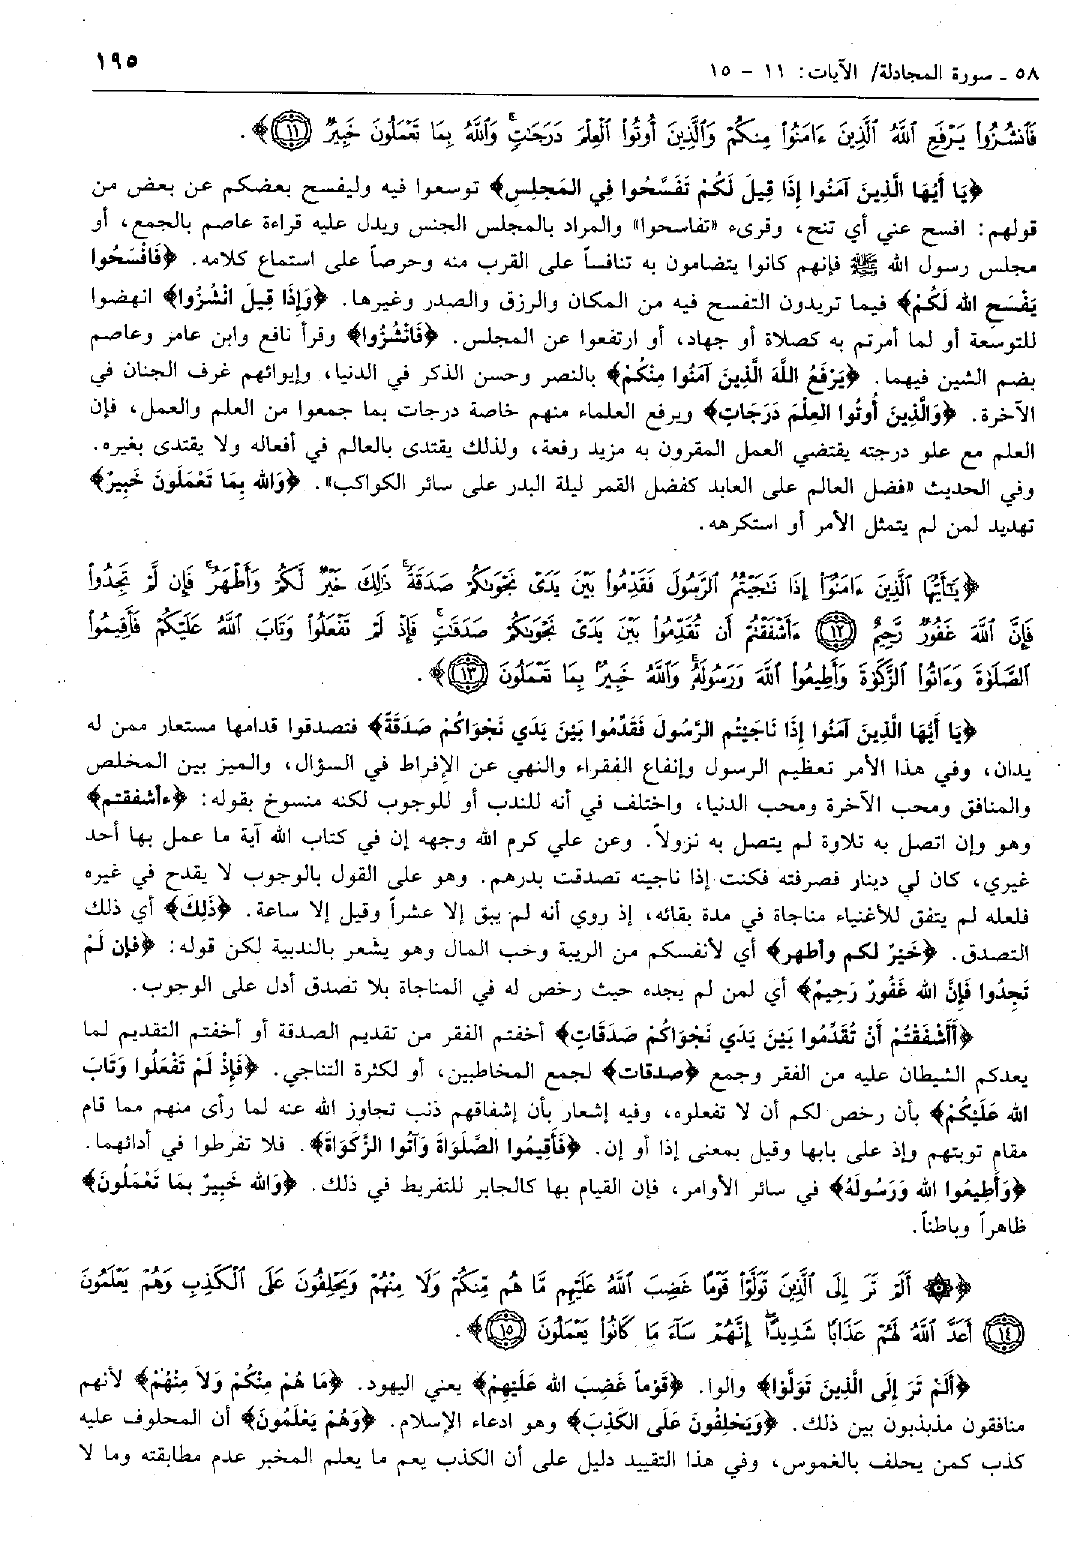 ٥٨ ـ سورة المجادلة/ الآيات: ١١ - ١٥
١٩٥
فَٱنشُزُوا۟ يَرْفَعِ ٱللَّهُ ٱلَّذِينَ ءَامَنُوا۟ مِنكُمْ وَٱلَّذِينَ أُوتُوا۟ ٱلْعِلْمَ دَرَجَٰتٍ ۚ وَٱللَّهُ بِمَا تَعْمَلُونَ خَبِيرٌ ﴿١١﴾﴾.
﴿يَا أَيُّهَا الَّذِينَ آمَنُوا إِذَا قِيلَ لَكُمْ تَفَسَّحُوا فِي المَجلِس﴾ توسعوا فيه وليفسح بعضكم عن بعض من
قولهم: افسح عني أي تنح، وقرىء «تفاسحوا» والمراد بالمجلس الجنس ويدل عليه قراءة عاصم بالجمع، أو
مجلس رسول الله ﷺ فإنهم كانوا يتضامون به تنافساً على القرب منه وحرصاً على استماع كلامه. ﴿فَافْسَحُوا
يَفْسَحِ الله لَكُمْ﴾ فيما تريدون التفسح فيه من المكان والرزق والصدر وغيرها. ﴿وَإِذَا قِيلَ انْشُزُوا﴾ انهضوا
للتوسعة أو لما أمرتم به كصلاة أو جهاد، أو ارتفعوا عن المجلس. ﴿فَانْشُزُوا﴾ وقرأ نافع وابن عامر وعاصم
بضم الشين فيهما. ﴿يَرْفَعُ اللَّهَ الَّذِينَ آمَنُوا مِنكُمْ﴾ بالنصر وحسن الذكر في الدنيا، وإيوائهم غرف الجنان في
الآخرة. ﴿وَالَّذِينَ أُوتُوا العِلْمَ دَرَجَاتٍ﴾ ويرفع العلماء منهم خاصة درجات بما جمعوا من العلم والعمل، فإن
العلم مع علو درجته يقتضي العمل المقرون به مزيد رفعة، ولذلك يقتدى بالعالم في أفعاله ولا يقتدى بغيره.
وفي الحديث «فضل العالم على العابد كفضل القمر ليلة البدر على سائر الكواكب». ﴿وَالله بِمَا تَعْمَلُونَ خَبِيرٌ﴾
تهديد لمن لم يتمثل الأمر أو استكرهه.
﴿يَٰٓأَيُّهَا ٱلَّذِينَ ءَامَنُوٓا۟ إِذَا نَٰجَيْتُمُ ٱلرَّسُولَ فَقَدِّمُوا۟ بَيْنَ يَدَىْ نَجْوَىٰكُمْ صَدَقَةً ۚ ذَٰلِكَ خَيْرٌ لَّكُمْ وَأَطْهَرُ ۚ فَإِن لَّمْ تَجِدُوا۟
فَإِنَّ ٱللَّهَ غَفُورٌ رَّحِيمٌ ﴿١٢﴾ ءَأَشْفَقْتُمْ أَن تُقَدِّمُوا۟ بَيْنَ يَدَىْ نَجْوَىٰكُمْ صَدَقَٰتٍ ۚ فَإِذْ لَمْ تَفْعَلُوا۟ وَتَابَ ٱللَّهُ عَلَيْكُمْ فَأَقِيمُوا۟
ٱلصَّلَوٰةَ وَءَاتُوا۟ ٱلزَّكَوٰةَ وَأَطِيعُوا۟ ٱللَّهَ وَرَسُولَهُۥ ۚ وَٱللَّهُ خَبِيرٌۢ بِمَا تَعْمَلُونَ ﴿١٣﴾﴾.
﴿يَا أَيُّهَا الَّذِينَ آمَنُوا إِذَا نَاجَيْتُم الرَّسُولَ فَقَدِّمُوا بَيْنَ يَدَي نَجْوَاكُمْ صَدَقَةً﴾ فتصدقوا قدامها مستعار ممن له
يدان، وفي هذا الأمر تعظيم الرسول وإنفاع الفقراء والنهي عن الإفراط في السؤال، والميز بين المخلص
والمنافق ومحب الآخرة ومحب الدنيا، واختلف في أنه للندب أو للوجوب لكنه منسوخ بقوله: ﴿ءأشفقتم﴾
وهو وإن اتصل به تلاوة لم يتصل به نزولاً. وعن علي كرم الله وجهه إن في كتاب الله آية ما عمل بها أحد
غيري، كان لي دينار فصرفته فكنت إذا ناجيته تصدقت بدرهم. وهو على القول بالوجوب لا يقدح في غيره
فلعله لم يتفق للأغنياء مناجاة في مدة بقائه، إذ روي أنه لم يبق إلا عشراً وقيل إلا ساعة. ﴿ذَلِكَ﴾ أي ذلك
التصدق. ﴿خَيْرٌ لكم وأطهر﴾ أي لأنفسكم من الريبة وحب المال وهو يشعر بالندبية لكن قوله: ﴿فإن لَمْ
تَجِدُوا فَإِنَّ الله غَفُورٌ رَحِيمٌ﴾ أي لمن لم يجده حيث رخص له في المناجاة بلا تصدق أدل على الوجوب.
﴿أَأَشْفَقْتُمْ أَنْ تُقَدِّمُوا بَيْنَ يَدَي نَجْوَاكُمْ صَدَقَاتٍ﴾ أخفتم الفقر من تقديم الصدقة أو أخفتم التقديم لما
يعدكم الشيطان عليه من الفقر وجمع ﴿صدقات﴾ لجمع المخاطبين، أو لكثرة التناجي. ﴿فَإِذْ لَمْ تَفْعَلُوا وَتَابَ
الله عَلَيْكُمْ﴾ بأن رخص لكم أن لا تفعلوه، وفيه إشعار بأن إشفاقهم ذنب تجاوز الله عنه لما رأى منهم مما قام
مقام توبتهم وإذ على بابها وقيل بمعنى إذا أو إن. ﴿فَأَقِيمُوا الصَّلَوَاةَ وَآتُوا الزَّكَوَاةَ﴾. فلا تفرطوا في أدائهما.
﴿وَأَطِيعُوا الله وَرَسُولَهُ﴾ في سائر الأوامر، فإن القيام بها كالجابر للتفريط في ذلك. ﴿وَالله خَبِيرٌ بِمَا تَعْمَلُونَ﴾
ظاهراً وباطناً.
﴿۞ أَلَمْ تَرَ إِلَى ٱلَّذِينَ تَوَلَّوْا۟ قَوْمًا غَضِبَ ٱللَّهُ عَلَيْهِم مَّا هُم مِّنكُمْ وَلَا مِنْهُمْ وَيَحْلِفُونَ عَلَى ٱلْكَذِبِ وَهُمْ يَعْلَمُونَ
﴿١٤﴾ أَعَدَّ ٱللَّهُ لَهُمْ عَذَابًا شَدِيدًا ۖ إِنَّهُمْ سَآءَ مَا كَانُوا۟ يَعْمَلُونَ ﴿١٥﴾﴾.
﴿أَلَمْ تَرَ إِلَى الَّذِينَ تَوَلَّوْا﴾ والوا. ﴿قَوْماً غَضِبَ الله عَلَيْهِمْ﴾ يعني اليهود. ﴿مَا هُمْ مِنْكُمْ وَلاَ مِنْهُمْ﴾ لأنهم
منافقون مذبذبون بين ذلك. ﴿وَيَحْلِفُونَ عَلَى الكَذِبَ﴾ وهو ادعاء الإسلام. ﴿وَهُمْ يَعْلَمُونَ﴾ أن المحلوف عليه
كذب كمن يحلف بالغموس، وفي هذا التقييد دليل على أن الكذب يعم ما يعلم المخبر عدم مطابقته وما لا